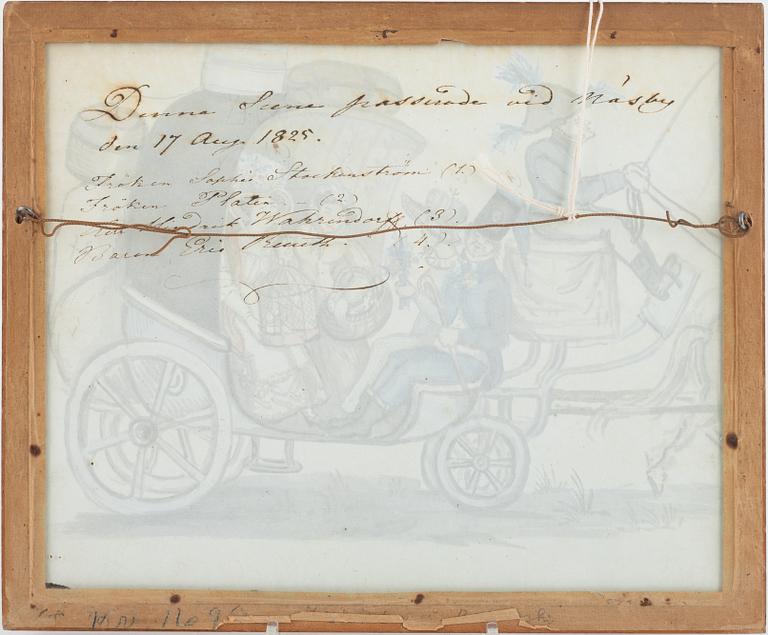 Denna Scene passerade vid Näsby
den 17 Aug. 1825.
Fröken Sophie Stockenström (1)
Fröken Platen - (2)
Wahrendorff (3)
Baron Eric Ruuth. (4.)